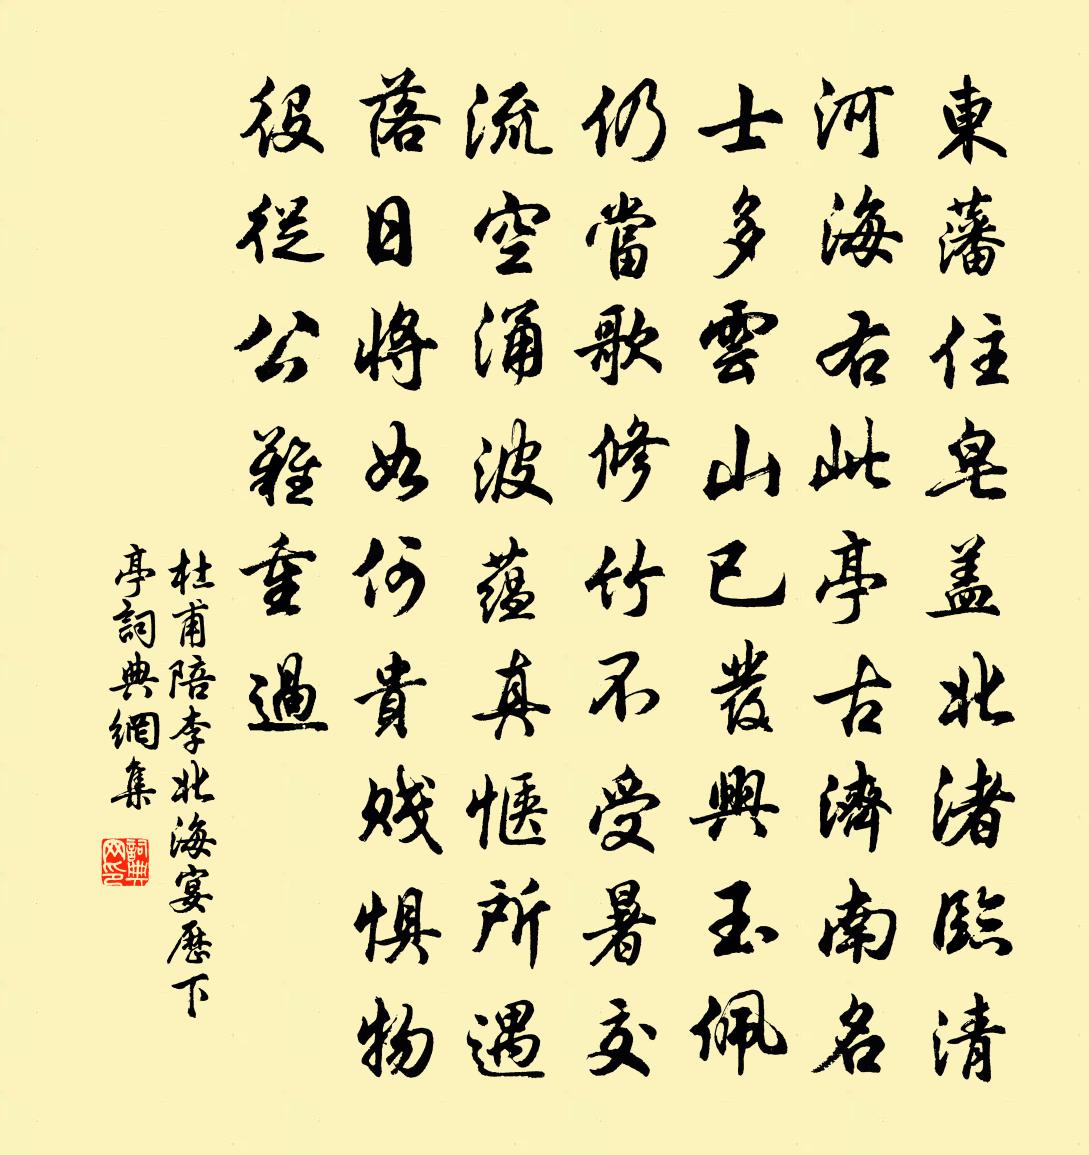 東藩住皂盖北渚臨清
河海右此亭古濟南名
士多雲山已發興玉佩
仍當歌修竹不受暑交
流空涌波蕴真愜所遇
落日將如何貴賤惧物
役從公難重過
杜甫陪李北海宴歷下
亭詞典網集
詞典网印